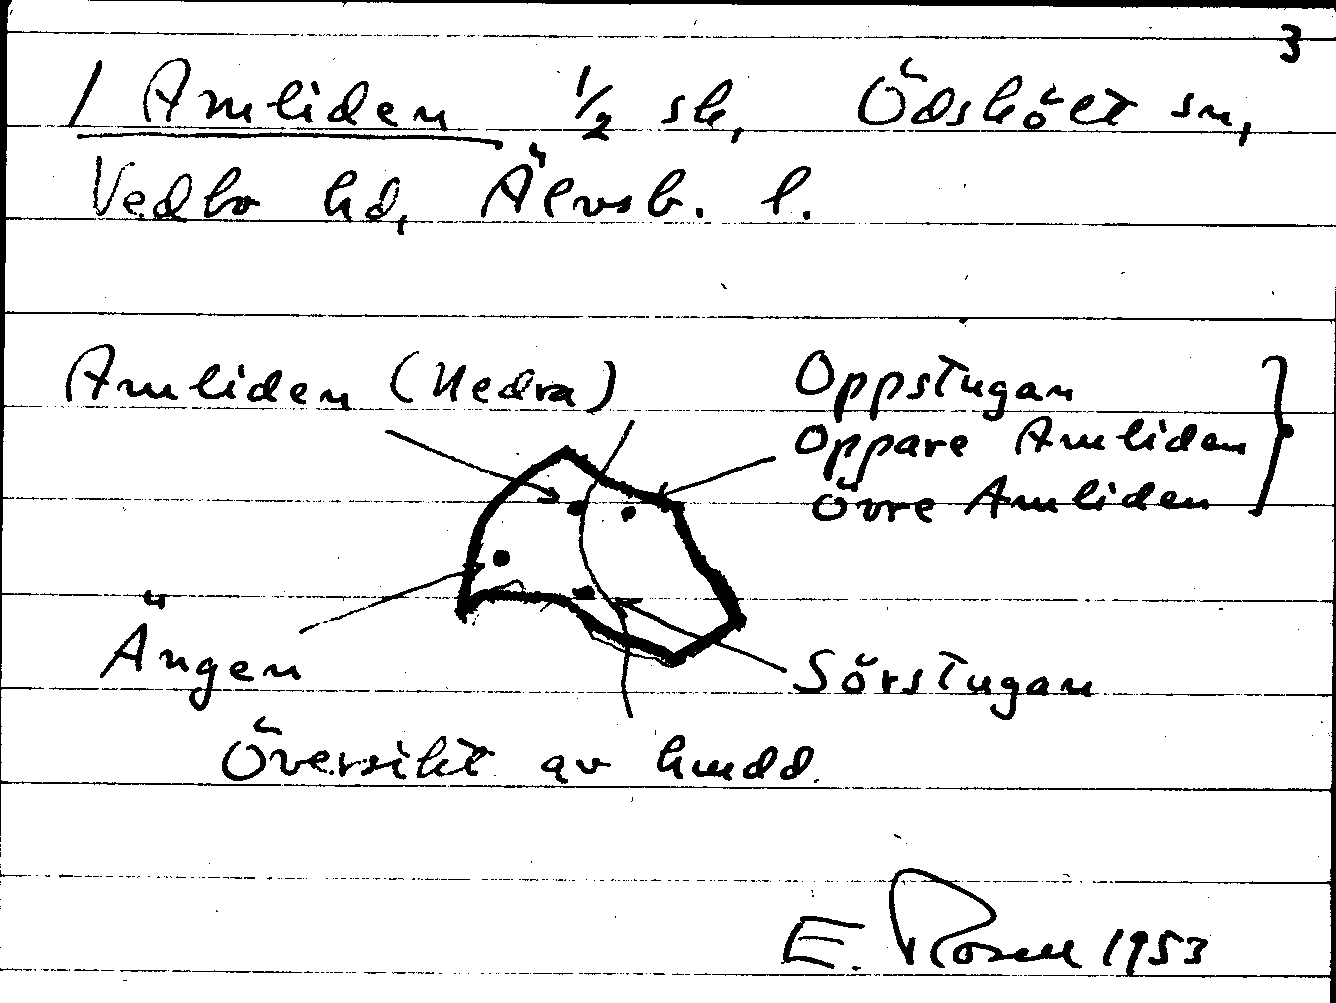 3
1 Amliden 1/2 sk, Ödskölt sn,
Vedbo hd, Älvsb. l.
Amliden (Nedra)
Oppstugan
Oppare Amliden
Övre Amliden
Ängen
Sörstugan
Översikt av hmdd.
E. Rosell 1953